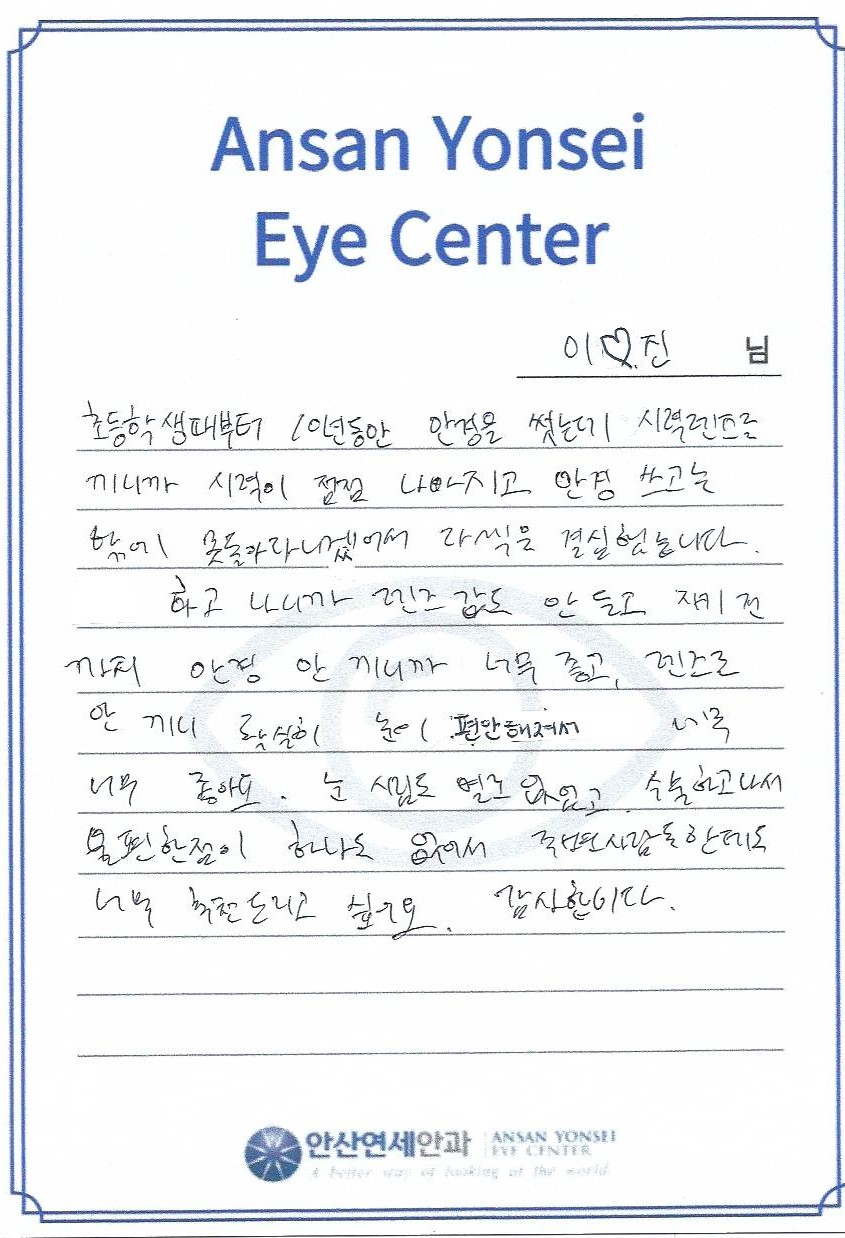 Ansan Yonsei
Eye Center
이♡진 님
초등학생때부터 10년동안 안경을 썼는데 시력렌즈를
끼니까 시력이 점점 나빠지고 안경 쓰고는
밖에 못돌아다니겠어서 라식을 결심했습니다.
하고 나니까 렌즈 값도 안 들고 자기 전
까지 안경 안 끼니까 너무 좋고, 렌즈를
안 끼니 확실히 눈이 편안해져서 너무
너무 좋아요. 눈 시림도 별로 없었고 수술하고나서
불편한점이 하나도 없어서 주변사람들한테도
너무 추천드리고 싶구요. 감사합니다.
안산연세안과 ANSAN YONSEI
EYE CENTER
A better way of looking at the world